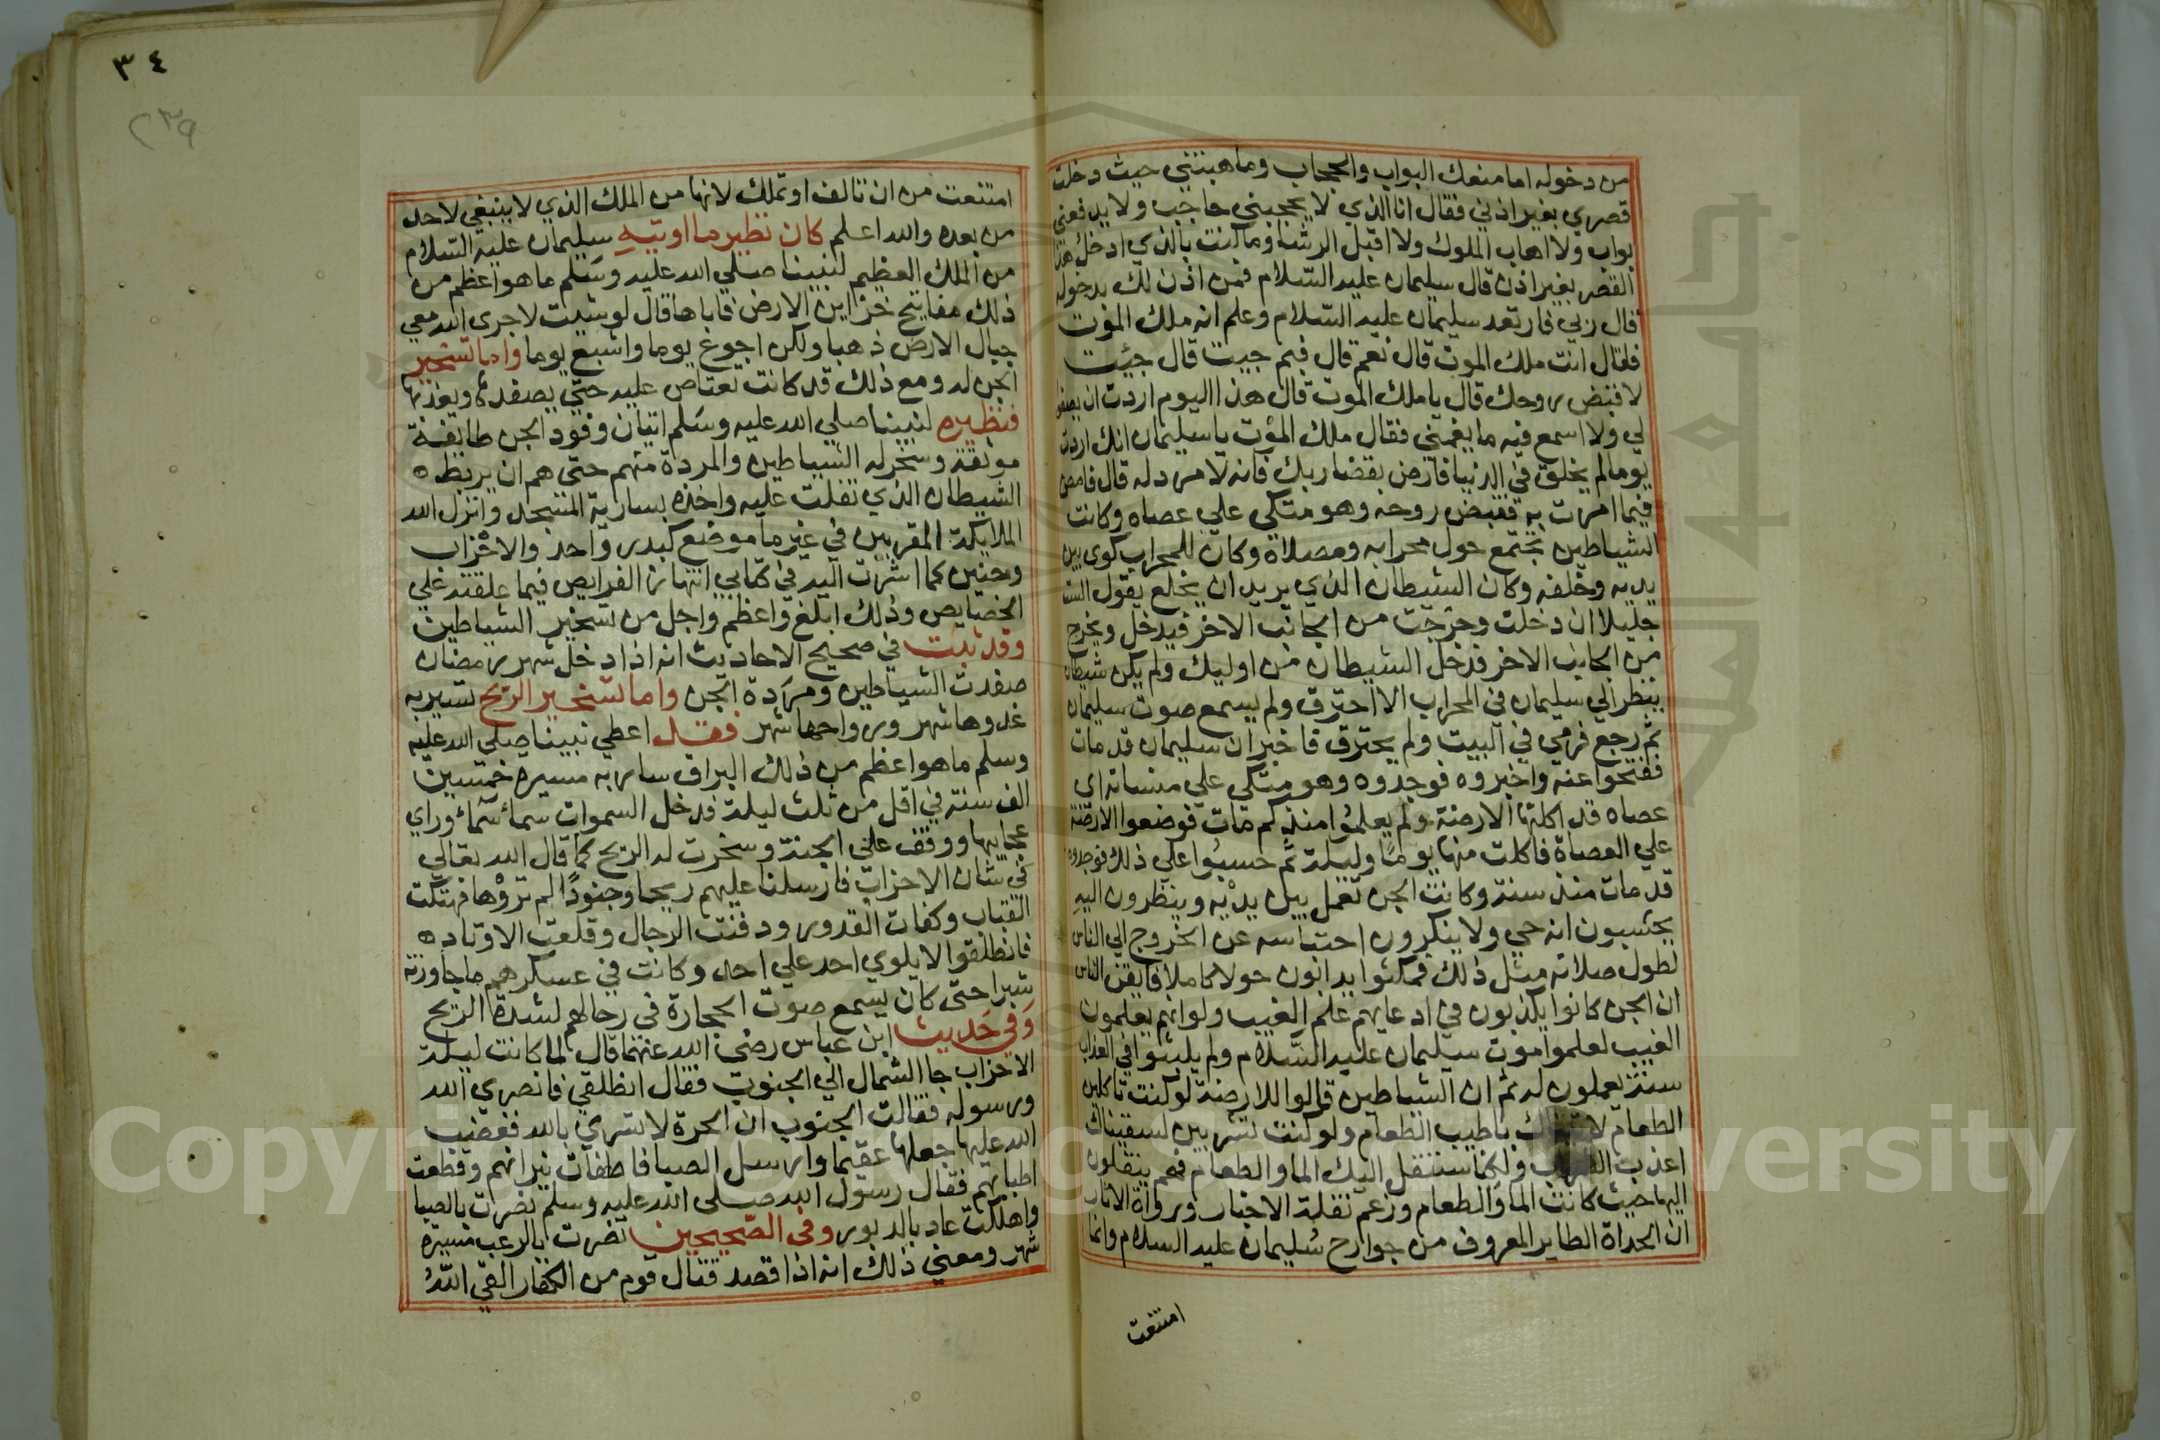 من دخوله اما منعك البواب والحجاب وما هبتني حيث دخلت
قصري بغير اذني فقال انا الذي لا يحجبني حاجب ولا يدفعني
بواب ولا اهاب الملوك ولا اقبل الرشا وما كنت بالذي ادخل هذا
القصر بغير اذن قال سليمان عليه السلام فمن اذن لك بدخوله
قال ربي فارتعد سليمان عليه السلام وعلم انه ملك الموت
فقال انت ملك الموت قال نعم قال فبم جيت قال جئت
لاقبض روحك قال يا ملك الموت قال هذا اليوم اردت ان يصفو
لي ولا اسمع فيه ما يغمني فقال ملك الموت يا سليمان انك اردت
يوما لم يخلق في الدنيا فارض بقضا ربك فانه لا مرد له قال فامض
فيما امرت به فقبض روحه وهو متكي علي عصاه وكانت
الشياطين تجتمع حول محرابه ومصلاه وكان للمحراب كوى بين
يديه وخلفه وكان الشيطان الذي يريد ان يخلع يقول الست
جليلا ان دخلت وخرجت من الجانب الاخر فيدخل ويخرج
من الجانب الاخر فدخل الشيطان من اوليك ولم يكن شيطان
ينظر الي سليمان في المحراب الا احترق ولم يسمع صوت سليمان
ثم رجع فرمي في البيت ولم يحترق فاخبر ان سليمان قد مات
ففتحوا عنه واخبروه فوجدوه وهو متكي علي منساته اي
عصاه قد اكلتها الارضة ولم يعلموا منذ كم مات فوضعوا الارضة
علي العصاة فاكلت منها يوما وليلة ثم حسبوا علي ذلك فوجدوه
قد مات منذ سنة وكانت الجن تعمل بين يديه وينظرون اليه
يحسبون انه حي ولا ينكرون احتباسه عن الخروج الي الناس
لطول صلاته مثل ذلك فمكثوا يدانون حولا كاملا فايقن الناس
ان الجن كانوا يكذبون في ادعايهم علم الغيب ولو انهم يعلمون
الغيب لعلموا موت سليمان عليه السلام ولم يلبثوا في العذاب
سنة يعملون له ثم ان الشياطين قالوا للارضة لو كنت تاكلين
الطعام باطيب الطعام ولو كنت تشربين لسقيناك
اعذب ولكنا سننقل اليك الما والطعام فهم ينقلون
اليها حيث كانت الما والطعام وزعم نقلة الاخبار ورواة الاثار
ان الحداة الطاير المعروف من جوارح سليمان عليه السلام وانما
امتنعت
٣٤
٢٣٩
امتنعت من ان تالف او تملك لانها من الملك الذي لا ينبغي لاحد
من بعده والله اعلم كان نظير ما اوتيه سليمان عليه السلام
من الملك العظيم لنبينا صلي الله عليه وسلم ما هو اعظم من
ذلك مفاتيح خزاين الارض فاباها قال لو شيت لاجرى الله معي
جبال الارض ذهبا ولكن اجوع يوما واشبع يوما واما تسخير
الجن له ومع ذلك قد كانت تعتاص عليه حتي يصفدها ويعذبها
فنظيره لنبينا صلي الله عليه وسلم اتيان وفود الجن طايفة
موثقة وسخر له الشياطين والمردة منهم حتي هم ان يربط
الشيطان الذي تفلت عليه واخذه بسارية المسجد وانزل الله
الملايكة المقربين في غير ما موضع كبدر واحد والاحزاب
وحنين كما اشرت اليه في كتابي انتهاز الفرايص فيما علقته علي
الخصايص وذلك ابلغ واعظم واجل من تسخير الشياطين
وقد ثبت في صحيح الاحاديث انه اذا دخل شهر رمضان
صفدت الشياطين ومردة الجن واما تسخير الريح تسير به
غدوها شهر ورواحها شهر فقد اعطي نبينا صلي الله عليه
وسلم ما هو اعظم من ذلك البراق سار به مسيرة خمسين
الف سنة في اقل من ثلث ليلة فدخل السموات سماء سماء وراي
عجايبها ووقف علي الجنة وسخرت له الريح كما قال الله تعالي
في شان الاحزاب فارسلنا عليهم ريحا وجنودا لم تروها فهتكت
القباب وكفات القدور ودفنت الرجال وقلعت الاوتاد
فانطلقوا لا يلوي احد علي احد وكانت في عسكرهم ما جاوزته
شبرا حتى كان يسمع صوت الحجارة في رحالهم لشدة الريح
وفي حديث ابن عباس رضي الله عنهما قال لما كانت ليلة
الاحزاب جا الشمال الي الجنوب فقال انطلقي فانصري الله
ورسوله فقالت الجنوب ان الحرة لا تسري بالليل فغضب
الله عليها جعلها عقيما وارسل الصبا فاطفات نيرانهم وقطعت
اطنابهم فقال رسول الله صلى الله عليه وسلم نصرت بالصبا
واهلكت عاد بالدبور وفي الصحيحين نصرت بالرعب مسيرة
شهر ومعني ذلك انه اذا قصد قتال قوم من الكفار القي الله
Copyright © King Saud University
جامعة الملك سعود